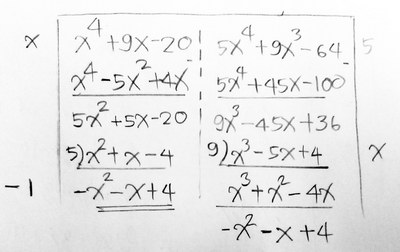 x x⁴+9x-20 5x⁴+9x³-64 5
x⁴-5x²+4x 5x⁴+45x-100
5x²+5x-20 9x³-45x+36
5)x²+x-4 9)x³-5x+4 x
-1 -x²-x+4 x³+x²-4x
-x²-x+4